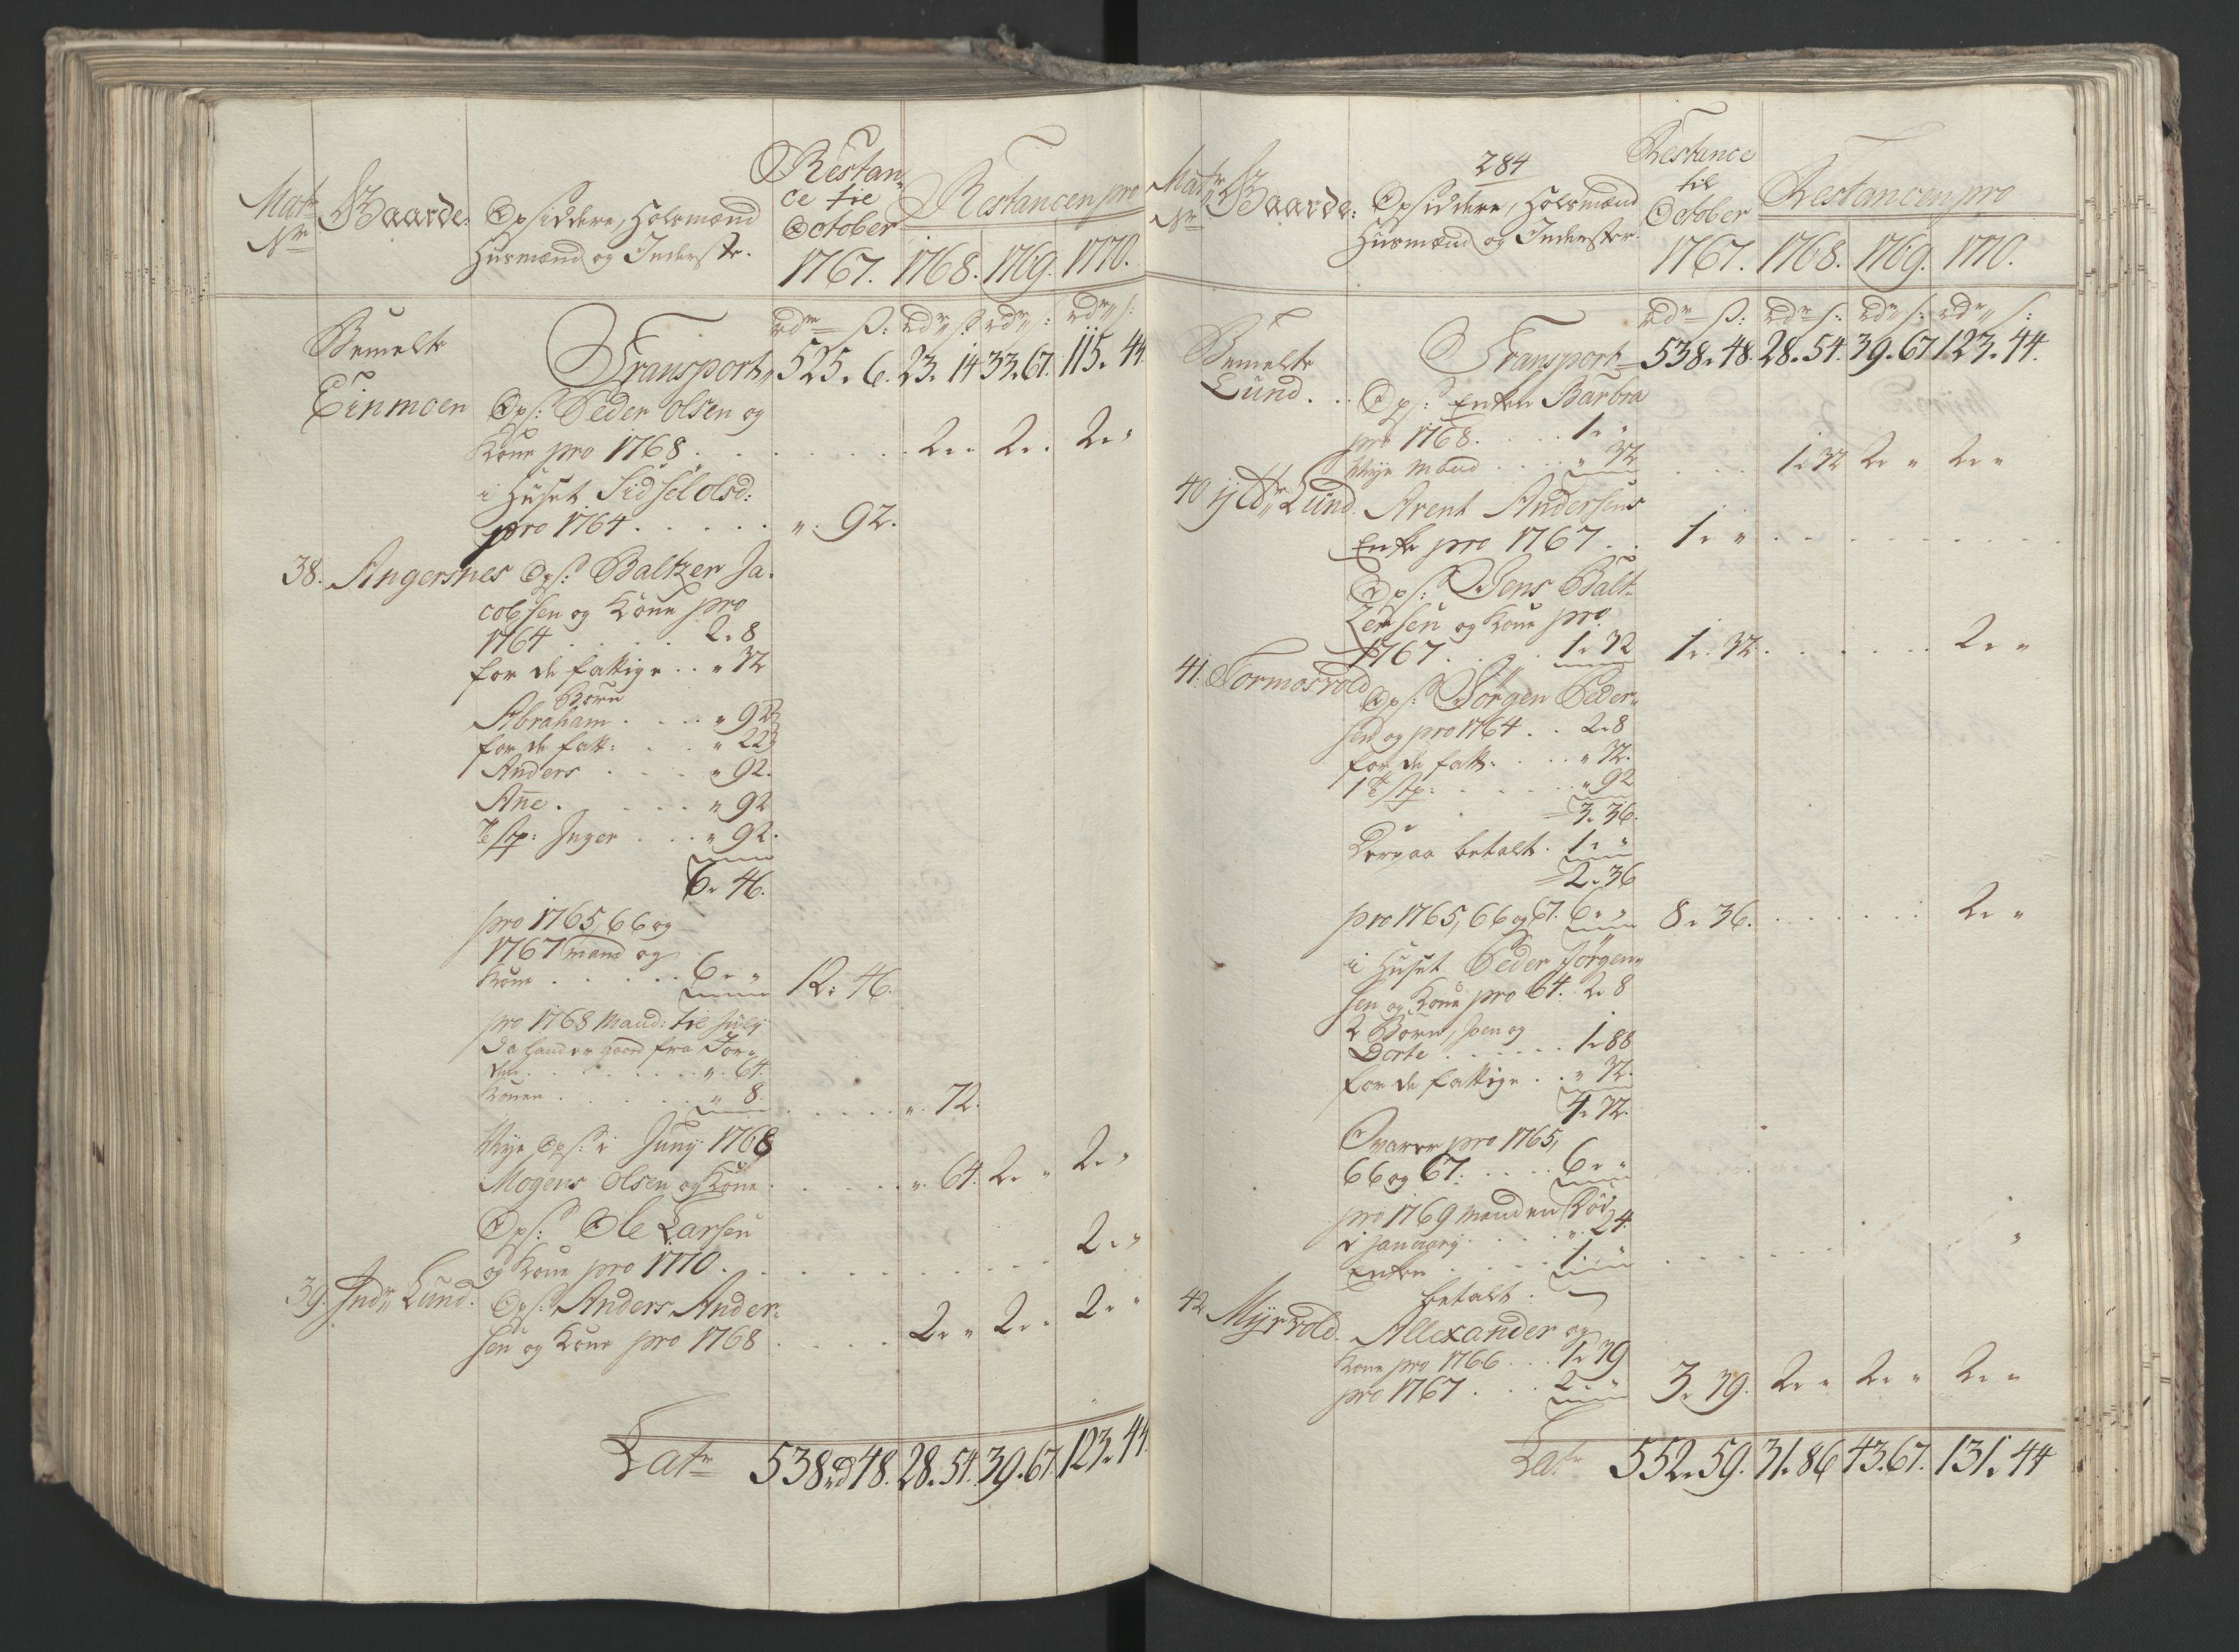 Matr Nr
Gaarde:
Opsiddere, Holsmænd
Husmænd og Inderster.
Restan-
ce til
October
1767.
Restancen pro
1768. 1769. 1770.
rdr ß: rdr ß rdr : rdr ß:
Bemelte
Einmoen
Transport 525. 6. 23. 14 33. 67. 115. 44
Ops: Peder Olsen og
Kone pro 1768 . . . . . 2. „ 2. „ 2. „
i Huset Sidsel olsd:
pro 1764 . . . . . „. 92.
38. Angersnes Ops: Baltzer Ja-
cobsen og Kone pro
1764 . . . . 2. 8
for de fattige . . „ 32
Børn
Abraham . . . . „ 92
for de fatt: . . . „ 22
Anders . . . . „ 92.
Añe . . . . . „ 92
Inger . . . „ 92.
6. 46.
pro 1765, 66 og
1767 mand og
Kone . . . . . 6. „ 12. 46.
pro 1768 Mand: til July
da hand er fra Jor-
den . . . . . . „. 64.
Konen . . . . . „ 8. . . . . „. 72.
Nye Ops: i Juny 1768
Mogens Olsen og Kone . . . . . „. 64. 2. „ 2. „
Ops: Ole Larsen
og Kone pro 1770 . . . . . . 2. „
39. Indr. Lund. Ops: Anders Ander-
sen og Kone pro 1768 . . . . 2. „ 2. „ 2. „
Latr 538 rd 48. 28. 54. 39. 67. 123. 44.
284
Matr Nr
Gaarde:
Opsiddere, Holsmænd
Husmænd og Inderster.
Restance
til
October
1767.
Restancen pro
1768. 1769. 1770.
rdr ß: rdr ß: rdr ß: rdr ß:
Bemelte
Lund . .
Transport 538. 48. 28. 54. 39. 67 123. 44.
Ops: Enken Barbra
pro 1768. . . . . 1. „
Nye Mand . . . „ 32 . . . 1. 32 2. „ 2. „
40 Lund. Arent Andersens
Enke pro 1767 . . 1. „ . . . . .
Ops: Jens Balt-
zersen og Kone pro
1767 . . . . 1. 32 1. 32. . . . . . 2. „
41. Tormosvold Ops: Jørgen Peder-
sen og pro 1764 . . 2. 8
for de fatt: . . . „ 32.
. . . . . „ 92
3. 36.
Derpaa betalt . 1. „
2. 36
pro 1765, 66 og 67. 6. „ 8. 36. . . . . . 2. „
i Huset Peder Jørgen-
sen og Kone pro 64. 2. 8
2 Børn, Joen og
Dorte . . . . . . 1. 88
for de fattige . . „ 32.
4. 32.
Svarer pro 1765,
66 og 67. . . . . 6. „
pro 1769 Manden død
i January . . . . „. 24.
Enken . . . . 1. „ . . . . . „
betalt .
42 Myrvold. Allexander og
Kone pro 1766 . . . 1. 39
pro 1767 . . . 2. „ 3. 39. 2. „ 2. „ 2. „
Latr 552. 59. 31. 86 43. 67. 131. 44